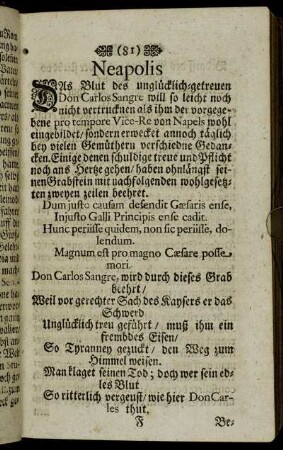 (81)
Neapolis
DAs Blut des unglücklich-getreuen
Don Carlos Sangre will so leicht noch
nicht vertrucknen als ihm der vorgege-
bene pro tempore Vice-Re von Napels wohl
eingebildet/ sondern erwecket annoch täglich
bey vielen Gemüthern verschiedne Gedan-
cken. Einige denen schuldige treue und Pflicht
noch ans Hertze gehen/ haben ohnlängst sei-
nen Grabstein mit nachfolgenden wohlgesetz-
ten zwyhen zeilen beehret.
Dum justo causam defendit Cæsaris ense,
Injusto Galli Principis ense cadit.
Hunc periisse quidem, non sic periisse, do-
lendum.
Magnum est pro magno Cæsare posse
mori.
Don Carlos Sangre, wird durch dieses Grab
beehrt/
Weil vor gerechter Sach des Kaysers er das
Schwerd
Unglücklich treu geführt/ muß ihm ein
frembdes Eisen/
So Tyranney gezuckt/ den Weg zum
Himmel weisen.
Man klaget seinen Tod; doch wer sein ed-
les Blut
So ritterlich vergeust/ wie hier Don Car-
les thut.
F Be-